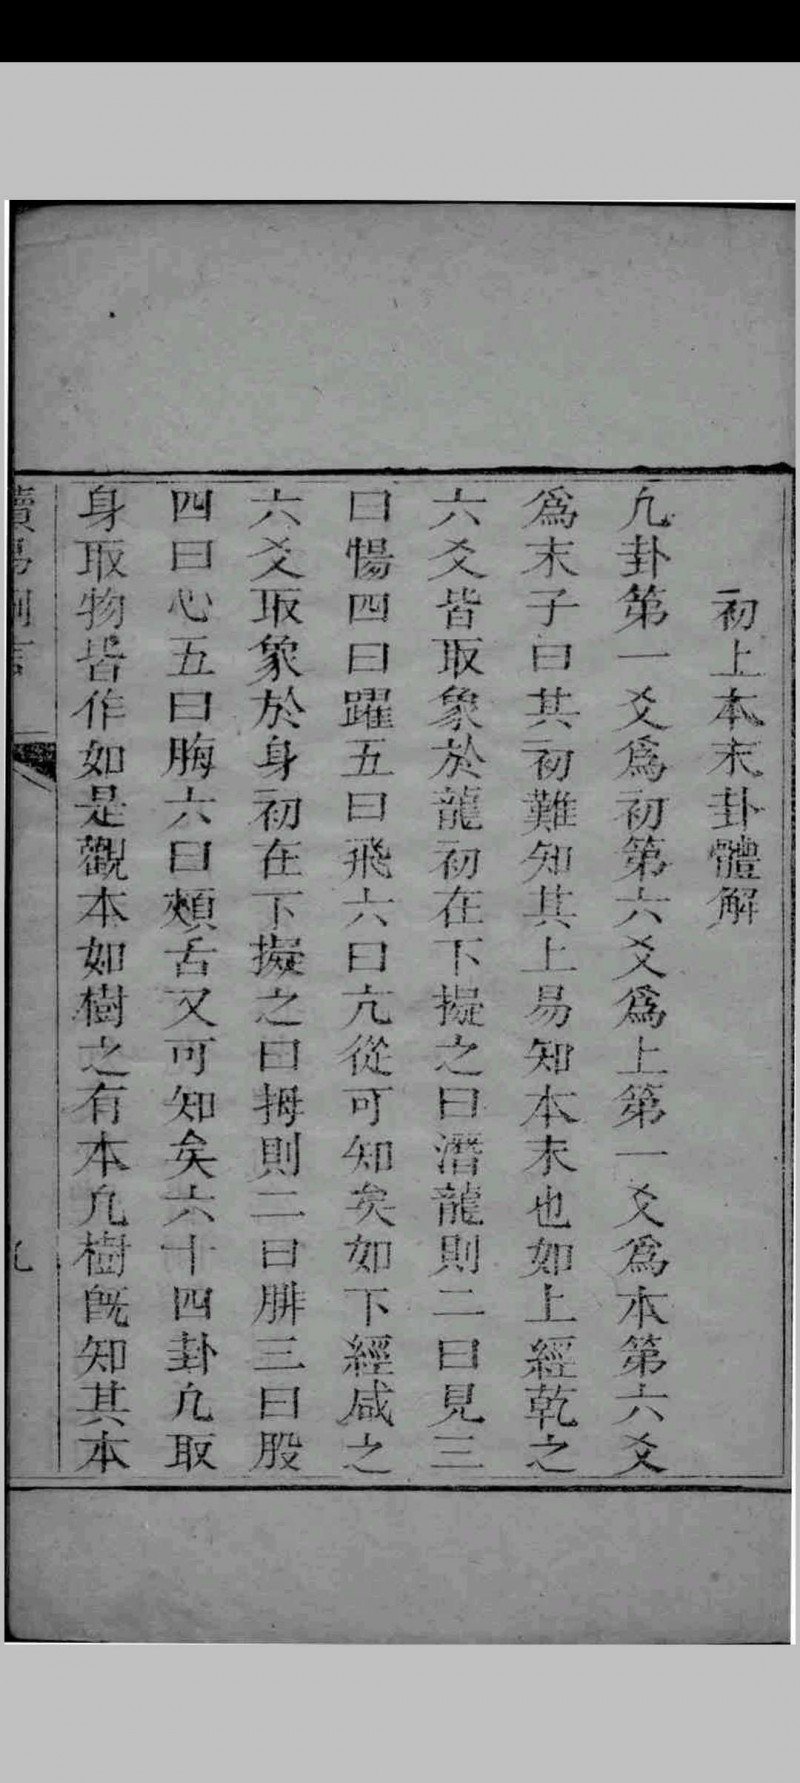 初上本末卦體解
凢卦第一爻爲初第六爻爲上第一爻爲本第六爻
爲末子曰其初難知其上易知本末也如上經乾之
六爻皆取象於龍初在下擬之曰潛龍則二曰見三
曰惕四曰躍五曰飛六曰亢從可知矣如下經咸之
六爻取象於身初在下擬之曰拇則二曰腓三曰股
四曰心五曰脢六曰頰舌又可知矣六十四卦凢取
身取物皆作如是觀本如樹之有本凢樹旣知其本